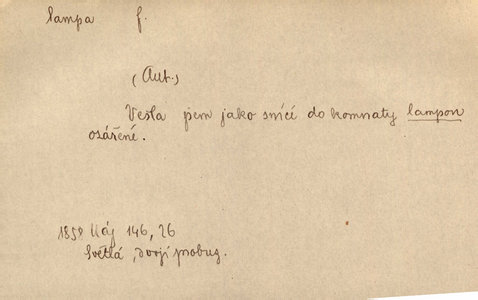 lampa f.
(Aut.)
Vešla jsem jako snící do komnaty lampou
ozářené.
1858 Máj 146, 26
Světlá, dvojí probuz.